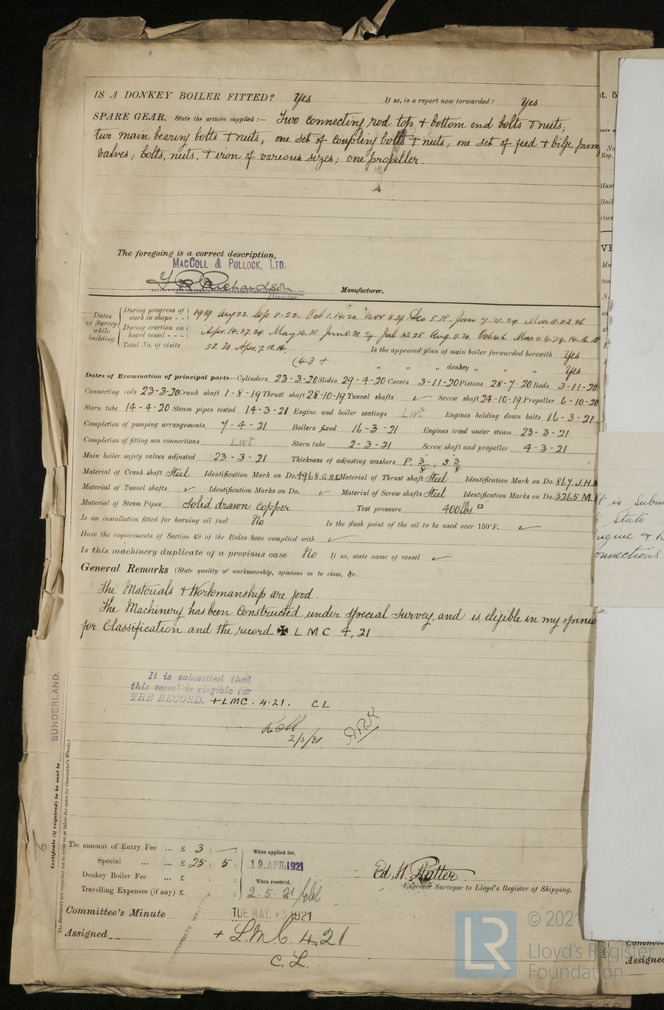 IS A DONKEY BOILER FITTED? Yes If so, is a report now forwarded? Yes
SPARE GEAR. State the articles supplied:— Two connecting rod top & bottom end bolts & nuts,
two main bearing bolts & nuts, one set of coupling bolts & nuts, one set of feed & bilge pump
valves; bolts, nuts, & iron of various sizes; one propeller.
The foregoing is a correct description,
MACCOLL & POLLOCK, LTD.
Richardson
Director
Manufacturer.
Dates of Survey while building
During progress of work in shops - - 1919 Aug 22. Sep 8. 22. Oct 1. 14. 20. Nov
During erection on board vessel - - - Apr. 14. 27. 29. May 14. 31. Jun
Total No. of visits 22. 30. Apr. 7. 12. 14. Is the approved plan of main boiler forwarded herewith Yes
(43 + " " " donkey " " " Yes.
Dates of Examination of principal parts—Cylinders 23-3-20 Slides 29-4-20 Covers 3-11-20 Pistons 28-7-20 Rods 3-11-20
Connecting rods 23-3-20 Crank shaft 1-8-19 Thrust shaft 28-10-19 Tunnel shafts ✓ Screw shaft 24-10-19 Propeller 6-10-20
Stern tube 14-4-20 Steam pipes tested 14-3-21 Engine and boiler seatings Engines holding down bolts 16-3-21
Completion of pumping arrangements 7-4-21 Boilers fixed 16-3-21 Engines tried under steam 23-3-21
Completion of fitting sea connections Stern tube 2-3-21 Screw shaft and propeller 4-3-21
Main boiler safety valves adjusted 23-3-21 Thickness of adjusting washers P. 3/8 S. 3/8
Material of Crank shaft Steel Identification Mark on Do. 4968 Material of Thrust shaft Steel Identification Mark on Do. 867 J.H.
Material of Tunnel shafts ✓ Identification Marks on Do. ✓ Material of Screw shafts Steel Identification Marks on Do. 3265 M
Material of Steam Pipes Solid drawn copper Test pressure 400 lbs. □"
Is an installation fitted for burning oil fuel No Is the flash point of the oil to be used over 150°F. ✓
Have the requirements of Section 49 of the Rules been complied with ✓
Is this machinery duplicate of a previous case No If so, state name of vessel ✓
General Remarks (State quality of workmanship, opinions as to class, &c.
The Materials & Workmanship are good.
The Machinery has been constructed under special survey, and is eligible in my opinion
for Classification and the record ✠ L M C 4,21
It is submitted that
this vessel is eligible for
THE RECORD. + LMC. 4.21. CL
2/5/21
SUNDERLAND.
Certificate (if required) to be sent to
The amount of Entry Fee ... £ 3 : When applied for,
Special ... ... £ 25 : 5 19 APR 1921
Donkey Boiler Fee ... £ When received,
Travelling Expenses (if any) £ 2.5.21
Ed. H. Rutter
Engineer Surveyor to Lloyd's Register of Shipping.
Committee's Minute TUE. MAY. 3 1921
Assigned + L.M.C. 4.21
C. L.
is Subm
State
connections
Assigned
LR
© 2021
Lloyd's Register
Foundation